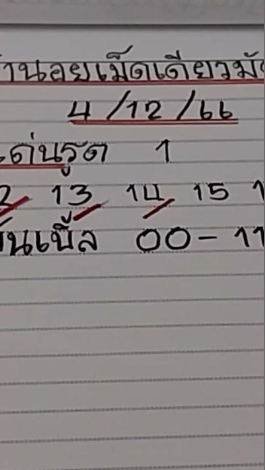 านอยเม็ดเดียวมั
4/12/66
เด่นรูด 1
2 13 14 15 1
ันเบิ้ล 00-11